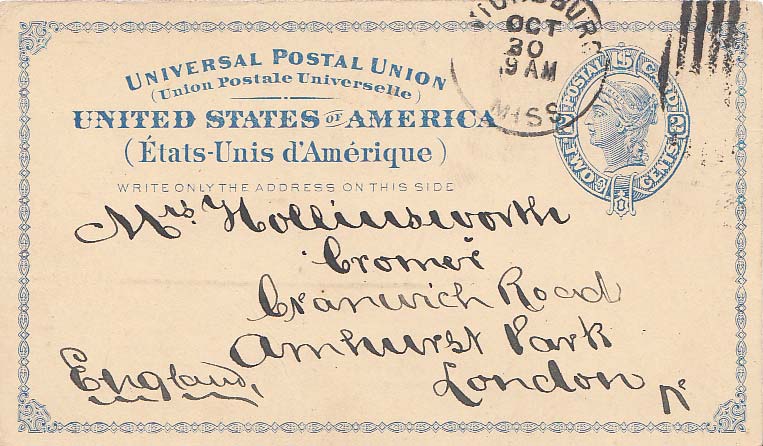 UNIVERSAL POSTAL UNION
(Union Postale Universelle)
UNITED STATES OF AMERICA
(États-Unis d'Amérique)
WRITE ONLY THE ADDRESS ON THIS SIDE
VICKSBURG
OCT
30
9 AM
MISS
POSTAL CARD
2 TWO CENTS 2
Mrs Hollinsworth
Cromer
Cranwich Road
Amhurst Park
London N
England,